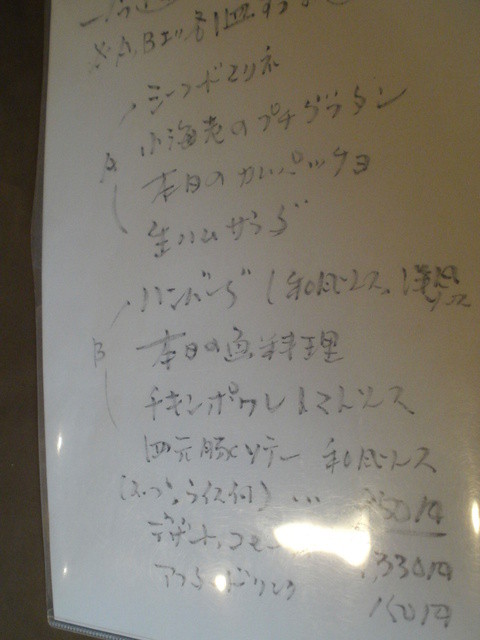 ※A,Bより各1皿
A
シーフードマリネ
小海老のプチグラタン
本日のカルパッチョ
生ハムサラダ
B
ハンバーグ(和風ソース,
本日の魚料理
チキンポワレ トマトソース
四元豚ソテー 和風ソース
ライス付)…
デザート,コーヒー 330円
アフタードリンク 150円